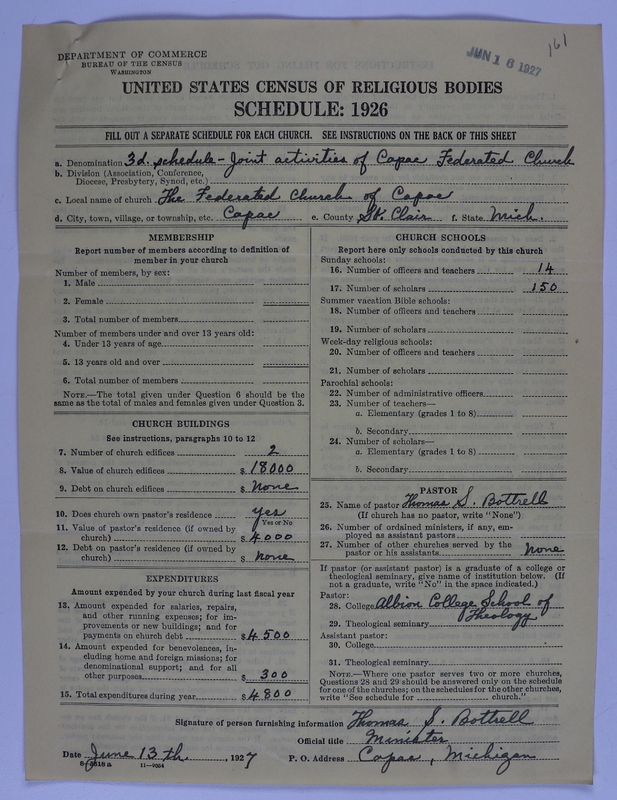 DEPARTMENT OF COMMERCE
BUREAU OF THE CENSUS
WASHINGTON
JUN 16 1927
161
UNITED STATES CENSUS OF RELIGIOUS BODIES
SCHEDULE: 1926
FILL OUT A SEPARATE SCHEDULE FOR EACH CHURCH. SEE INSTRUCTIONS ON THE BACK OF THIS SHEET
a. Denomination 3d. schedule - Joint activities of Capac Federated Church
b. Division (Association, Conference,
Diocese, Presbytery, Synod, etc.)
c. Local name of church The Federated Church of Capac
d. City, town, village, or township, etc. Capac e. County St. Clair f. State Mich.
MEMBERSHIP
Report number of members according to definition of
member in your church
Number of members, by sex:
1. Male
2. Female
3. Total number of members
Number of members under and over 13 years old:
4. Under 13 years of age
5. 13 years old and over
6. Total number of members
NOTE.—The total given under Question 6 should be the
same as the total of males and females given under Question 3.
CHURCH BUILDINGS
See instructions, paragraphs 10 to 12
7. Number of church edifices 2
8. Value of church edifices $18000
9. Debt on church edifices $ None
10. Does church own pastor's residence Yes
Yes or No
11. Value of pastor's residence (if owned by
church) $4000
12. Debt on pastor's residence (if owned by
church) $ None
EXPENDITURES
Amount expended by your church during last fiscal year
13. Amount expended for salaries, repairs,
and other running expenses; for im-
provements or new buildings; and for
payments on church debt $4500
14. Amount expended for benevolences, in-
cluding home and foreign missions; for
denominational support; and for all
other purposes $ 300
15. Total expenditures during year $4800
CHURCH SCHOOLS
Report here only schools conducted by this church
Sunday schools:
16. Number of officers and teachers 14
17. Number of scholars 150
Summer vacation Bible schools:
18. Number of officers and teachers
19. Number of scholars
Week-day religious schools:
20. Number of officers and teachers
21. Number of scholars
Parochial schools:
22. Number of administrative officers
23. Number of teachers—
a. Elementary (grades 1 to 8)
b. Secondary
24. Number of scholars—
a. Elementary (grades 1 to 8)
b. Secondary
PASTOR
25. Name of pastor Thomas S. Bottrell
(If church has no pastor, write "None")
26. Number of ordained ministers, if any, em-
ployed as assistant pastors
27. Number of other churches served by the
pastor or his assistants None
If pastor (or assistant pastor) is a graduate of a college or
theological seminary, give name of institution below. (If
not a graduate, write "No" in the space indicated.)
Pastor:
28. College Albion College School of
Theology
29. Theological seminary
Assistant pastor:
30. College
31. Theological seminary
NOTE.—Where one pastor serves two or more churches,
Questions 28 and 29 should be answered only on the schedule
for one of the churches; on the schedules for the other churches,
write "See schedule for church."
Signature of person furnishing information Thomas S. Bottrell
Official title Minister
Date June 13th, 1927 P. O. Address Capac, Michigan
11—9064